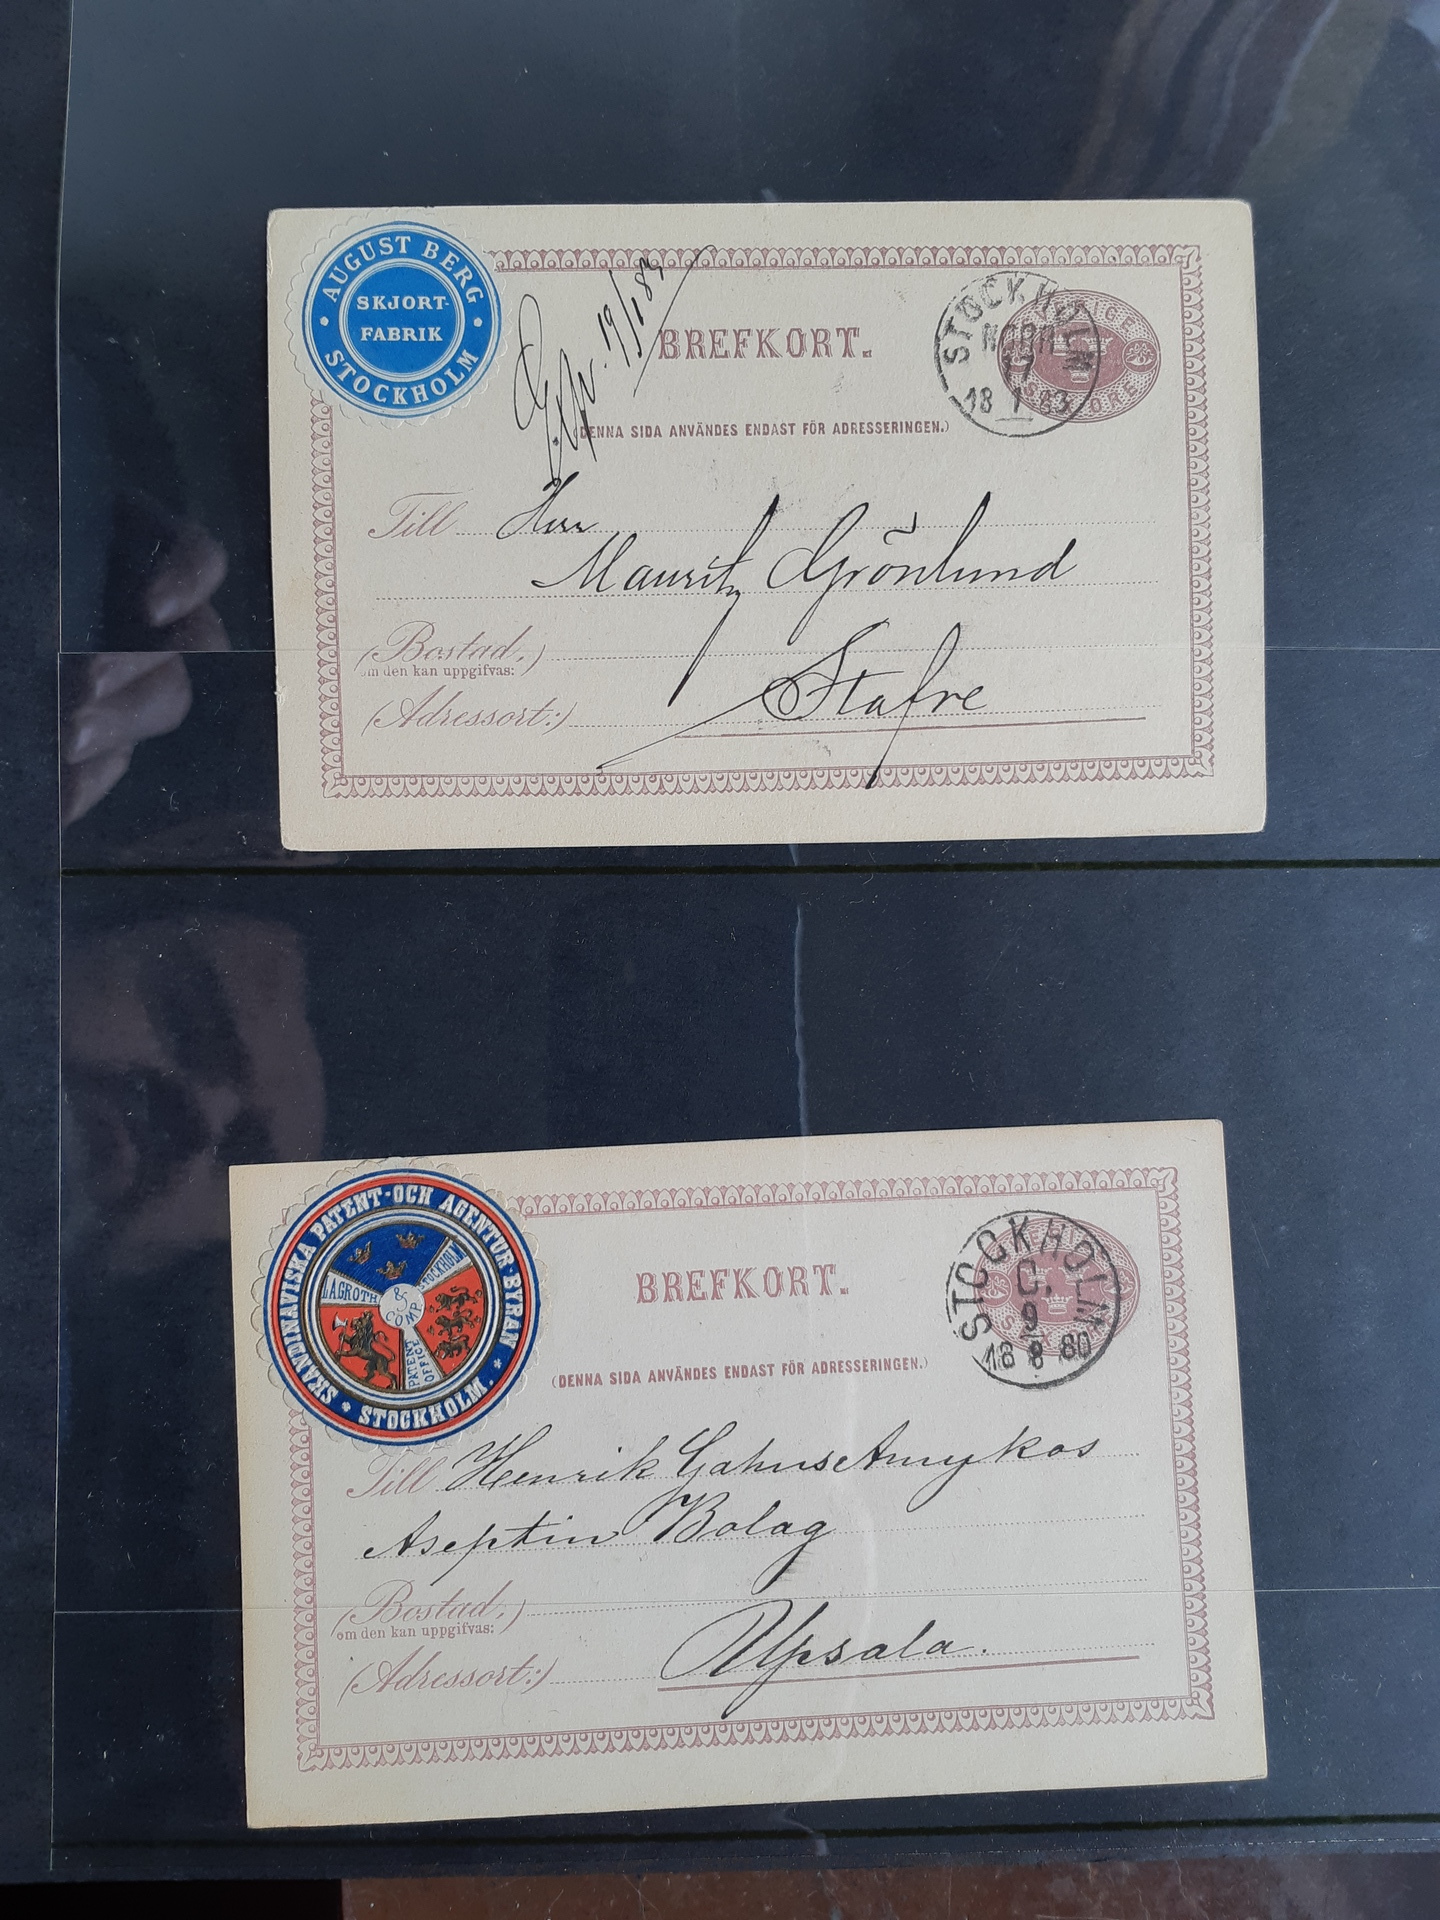 AUGUST BERG
SKJORT-
FABRIK
STOCKHOLM
Exp. 19/1 83
BREFKORT.
STOCKHOLM
NORR
17
18 1 83
(DENNA SIDA ANVÄNDES ENDAST FÖR ADRESSERINGEN.)
Till Herr
Mauritz Grönlund
(Bostad,)
om den kan uppgifvas:
Stafre
(Adressort:)
SKANDINAVISKA PATENT-OCH AGENTUR-BYRAN
STOCKHOLM.
LAGROTH
& COMP.
STOCKHOLM
PATENT
OFFICE
BREFKORT.
STOCKHOLM
C.
9
18 8 80
(DENNA SIDA ANVÄNDES ENDAST FÖR ADRESSERINGEN.)
Till Henrik Gahns Amykos
Aseptin Bolag
(Bostad,)
om den kan uppgifvas:
Upsala.
(Adressort:)